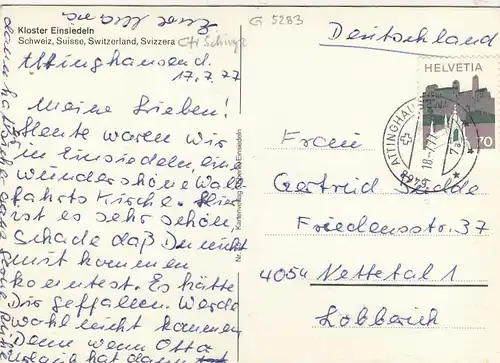 Kloster Einsiedeln
Schweiz, Suisse, Switzerland, Svizzera
G 5283
Attinghausen d.
17.7.77
Meine Lieben!
Heute waren wir
in Einsiedeln, eine
wunderschöne Wall
fahrts Kirche. Hier
ist es sehr schön,
schade daß Du nicht
mit kommen
konntest. Es hätte
Dir gefallen. Werde
wohl nicht kommen
Denn wenn Otto
Urlaub hat dann
Deutschland
HELVETIA
70
ATTINGHAUSEN
18.-7.77
Frau
Gertreid
Friedensstr. 37
4054 Nettetal 1
Lobberich